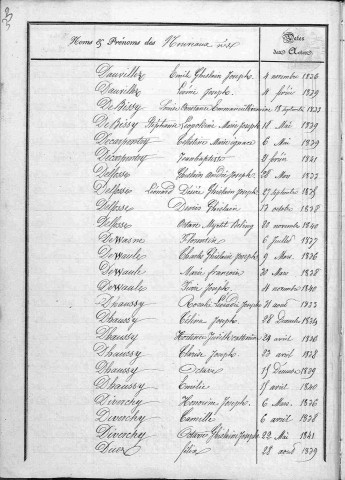 Noms & Prénoms des Nouveaux nés
Dates des Actes
Dauville Emile Ghislain Joseph 4 novembre 1836
Dauville Joseph 4 février 1839
De Bissy Louis Constance 18 septembre 1833
De Bissy Stéphanie Léopoldine Marie Joseph 18 Mai 1839
Decarpentry Célestine Marie 6 Mai 1839
Decarpentry Jean baptiste 2 février 1841
Delfosse Ghislain André Joseph 28 Mars 1833
Delfosse Léonard Désiré Ghislain Joseph 27 septembre 1835
Delfosse Désirée Ghislain 17 octobre 1838
Delfosse Octave 20 novembre 1840
Dewasme Florentin 6 Juillet 1837
Dewaule Charles Ghislain Joseph 9 Mars 1836
Dewaule Marie françoise 30 Mars 1838
Dewaule Joseph 11 novembre 1840
Dhaussy Joseph 21 avril 1833
Dhaussy Céline Joseph 28 Décembre 1834
Dhaussy Hortense 24 avril 1836
Dhaussy Joseph 23 avril 1838
Dhaussy Octave 15 Décembre 1839
Dhaussy Emélie 15 avril 1840
Divenchy Honorine Joseph 6 Mars 1836
Divenchy Camille 6 avril 1838
Divenchy Octavie Ghislain Joseph 22 Mai 1841
félix 28 août 1839